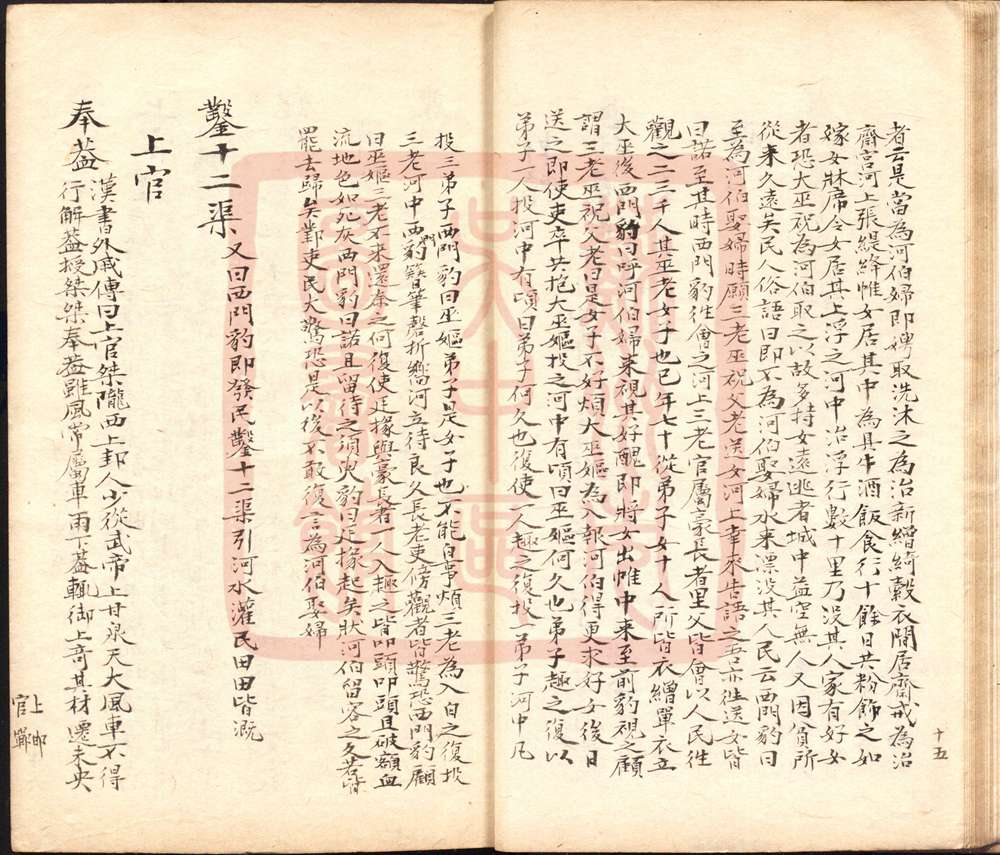 者云是當為河伯婦即娉取洗沐之為治新繒綺縠衣閒居齋戒為治
齋宮河上張緹絳帷女居其中為具牛酒飯食行十餘日共粉飾之如
嫁女牀席令女居其上浮之河中始浮行數十里乃沒其人家有好女
者恐大巫祝為河伯取之以故多持女遠逃者城中益空無人又困貧所
從來久遠矣民人俗語曰即不為河伯娶婦水來漂沒其人民云西門豹曰
至為河伯娶婦時願三老巫祝父老送女河上幸來告語之吾亦徃送女皆
曰諾至其時西門豹徃會之河上三老官屬豪長者里父皆會以人民徃
觀之二三千人其巫老女子也已年七十從弟子女十人所皆衣繒單衣立
大巫後西門豹曰呼河伯婦來視其好醜即將女出帷中來至前豹視之顧
謂三老巫祝父老曰是女子不好煩大巫嫗為入報河伯得更求好女後日
送之即使吏卒共抱大巫嫗投之河中有頃曰巫嫗何久也弟子趣之復以
弟子一人投河中有頃曰弟子何久也復使一人趣之復投一弟子河中凡
十五
投三弟子西門豹曰巫嫗弟子是女子也不能白事煩三老為入白之復投
三老河中西門豹簪筆磬折嚮河立待良久長老吏傍觀者皆驚恐西門豹顧
曰巫嫗三老不來還柰之何復使廷掾與豪長者一人入趣之皆叩頭叩頭且破額血
流地色如死灰西門豹曰諾且留待之須臾豹曰廷掾起矣狀河伯留客之久若皆
罷去歸矣鄴吏民大驚恐是以後不敢復言為河伯娶婦
鑿十二渠 又曰西門豹即發民鑿十二渠引河水灌民田田皆溉
上官
奉葢 漢書外戚傳曰上官桀隴西上邽人少從武帝上甘泉天大風車不得
行解葢授桀桀奉葢雖風常屬車雨下葢輒御上奇其材遷未央
上官